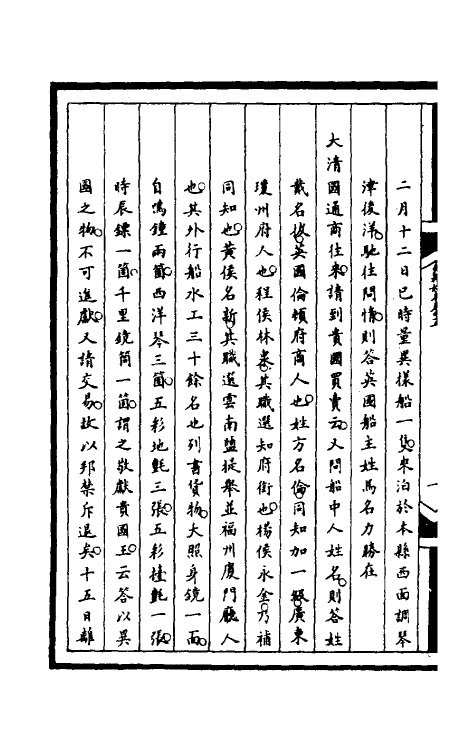 二月十二日巳時量異樣船一隻來泊於本縣西面調琴
津後洋馳往問情則答英國船主姓馬名力勝在
大清國通商往來請到貴國買賣云又問船中人姓名則答姓
戴名 英國倫頓府商人也姓方名倫同知加一級廣東
瓊州府人也程侯林 其職選知府銜也楊侯永金乃補
同知也黃侯名新其職選雲南鹽提舉並福州廈門廳人
也其外行船水工三十餘名也列書貨物大照身鏡一面
自鳴鐘兩箇西洋琴三箇五彩地氈三張五彩檯氈一張
時辰鏢一箇千里鏡筒一箇謂之敬獻貴國王云答以異
國之物不可進獻又請交易故以邦禁斥退矣十五日離